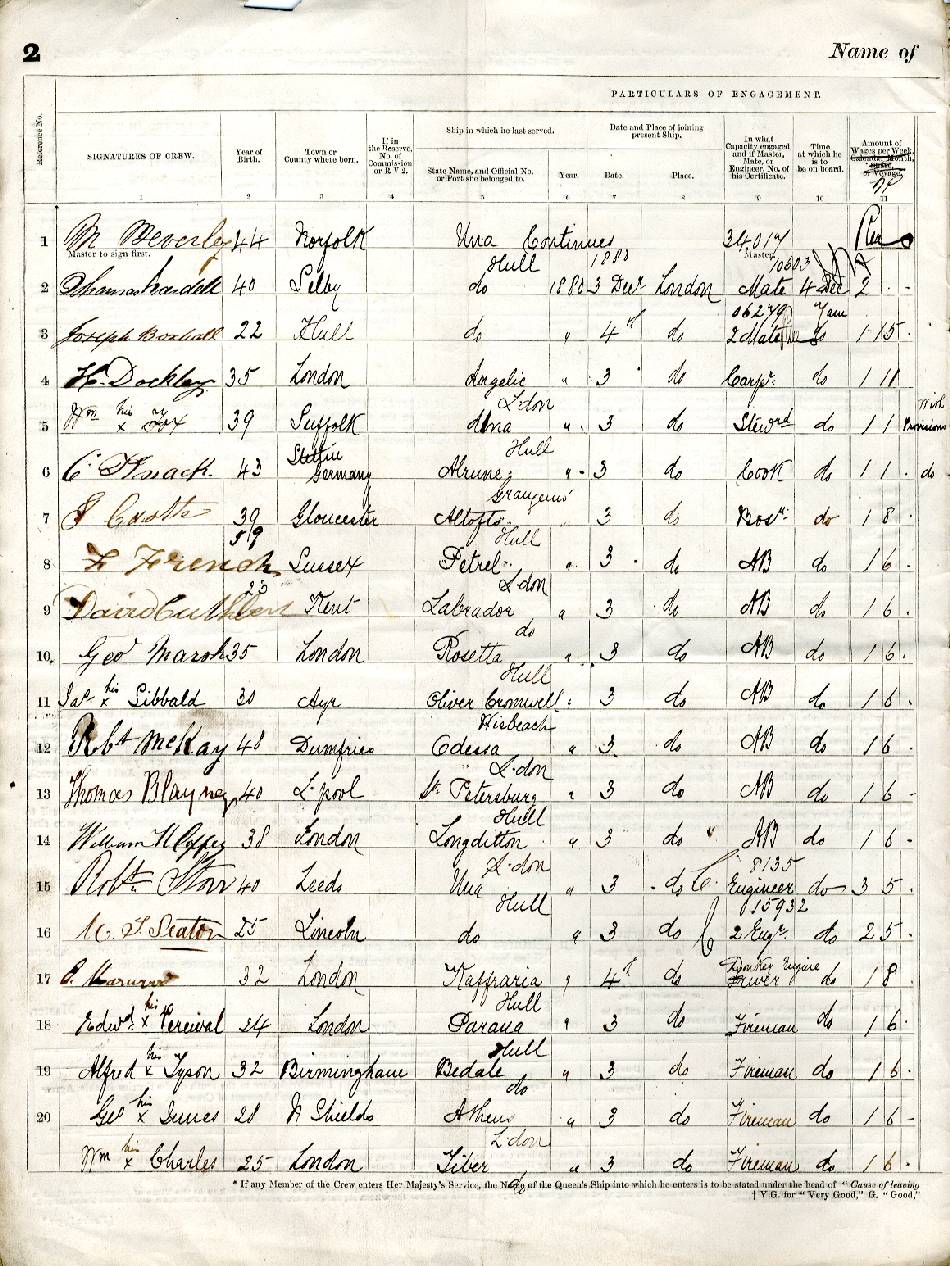 2 Name of
PARTICULARS OF ENGAGEMENT.
Reference No.
SIGNATURES OF CREW.
Year of Birth.
Town or County where born.
If in the Reserve, No. of Commission or R V 2.
Ship in which he last served.
State Name, and Official No. or Port she belonged to.
Year.
Date and Place of joining present Ship.
Date.
Place.
In what Capacity engaged and if Master, Mate, or Engineer, No. of his Certificate.
Time at which he is to be on board.
Amount of Wages per Week, Calendar Month, or Voyage.
1 2 3 4 5 6 7 8 9 10 11
1 M Beverley 44 Norfolk Una Continues 34014
Master to sign first. Hull 1883 Master 10603
2 40 Selby do 1883 3 Decr London Mate 4 Dec 2 - -
06279 7 am
3 Joseph Boxhall 22 Hull do " 4th do 2 Mate do 1 15 -
4 H. Dockley 35 London Angelic " 3 do Carpr do 1 11 -
L.don With
5 Wm his x Fox 39 Suffolk Una " 3 do Stewd do 1 1 Provisions
Hull
6 C Knack 43 Stettin Germany Alrune " 3 do Cook do 1 1 - do
7 39 Gloucester Altofts 3 do Bosn do 1 8 -
59 Hull
8 F French Sussex Petrel " 3 do AB do 1 6 -
L.don
9 David Cuthbert Kent Labrador " 3 do AB do 1 6 -
do
10 Geo Marsh 35 London Rosetta " 3 do AB do 1 6 -
Hull
11 Jas his x Sibbald 30 Ayr Oliver Cromwell " 3 do AB do 1 6 -
Wisbeach
12 Robt McKay 48 Dumfries Odessa " 3 do AB do 1 6 -
L.don
13 Thomas Blayney 40 L.pool St Petersburg " 3 do AB do 1 6 -
Hull
14 William H Coffey 38 London Longditton " 3 do AB do 1 6 -
L.don 8135
15 Robt Storr 40 Leeds Una " 3 do Engineer do 3 5 -
Hull 15932
16 Seaton 25 Lincoln do " 3 do 2 Engr do 2 5 -
Donkey Engine
17 32 London Kaffraria " 4th do Driver do 1 8
Hull
18 Edwd his x Percival 24 London Parana " 3 do Fireman do 1 6 -
Hull
19 Alfred his x Tyson 32 Birmingham Bedale " 3 do Fireman do 1 6 -
do
20 Geo his x Innes 28 N Shields Athens " 3 do Fireman do 1 6 -
L.don
Wm his x Charles 25 London Tiber " 3 do Fireman do 1 6 -
do
* If any Member of the Crew enters Her Majesty's Service, the Name of the Queen's Ship into which he enters is to be stated under the head of "Cause of leaving
† V.G. for "Very Good," G. "Good,"